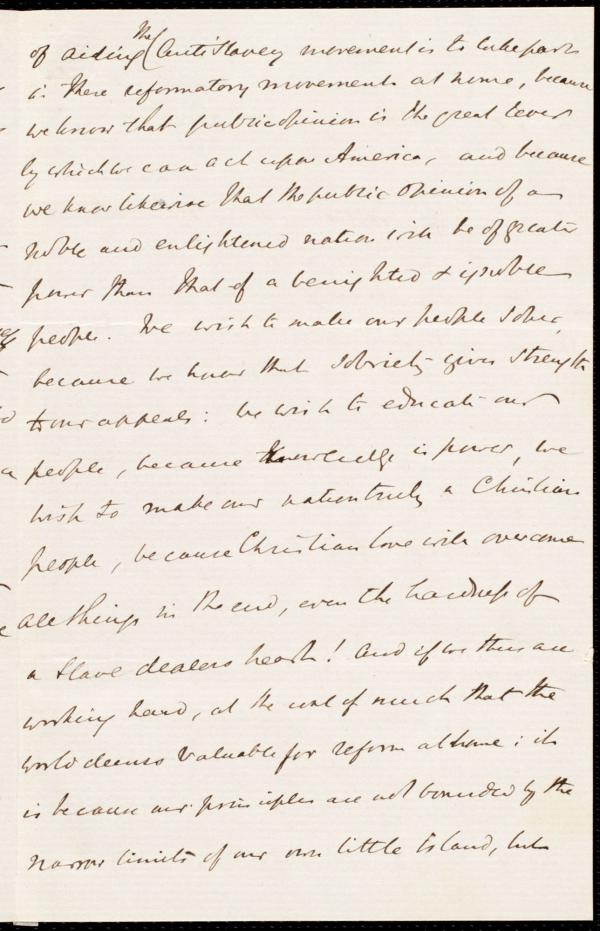 of aiding the Anti Slavery movement is to take part
in these reformatory movements at home, because
we know that public opinion is the great lever
by which we can act upon America, and because
we know likewise that the public opinion of a
noble and enlightened nation will be of greater
power than that of a benighted & ignoble
people. We wish to make our people sober,
because we know that sobriety gives strength
to our appeals: we wish to educate our
people, because knowledge is power, we
wish to make our nation truly a Christian
people, because Christian love will overcome
all things in the end, even the hardness of
a Slave dealers heart! And if we thus are
working hard, at the cost of much that the
world deems valuable for reform at home; it
is because our principles are not bounded by the
narrow limits of our own little Island, but